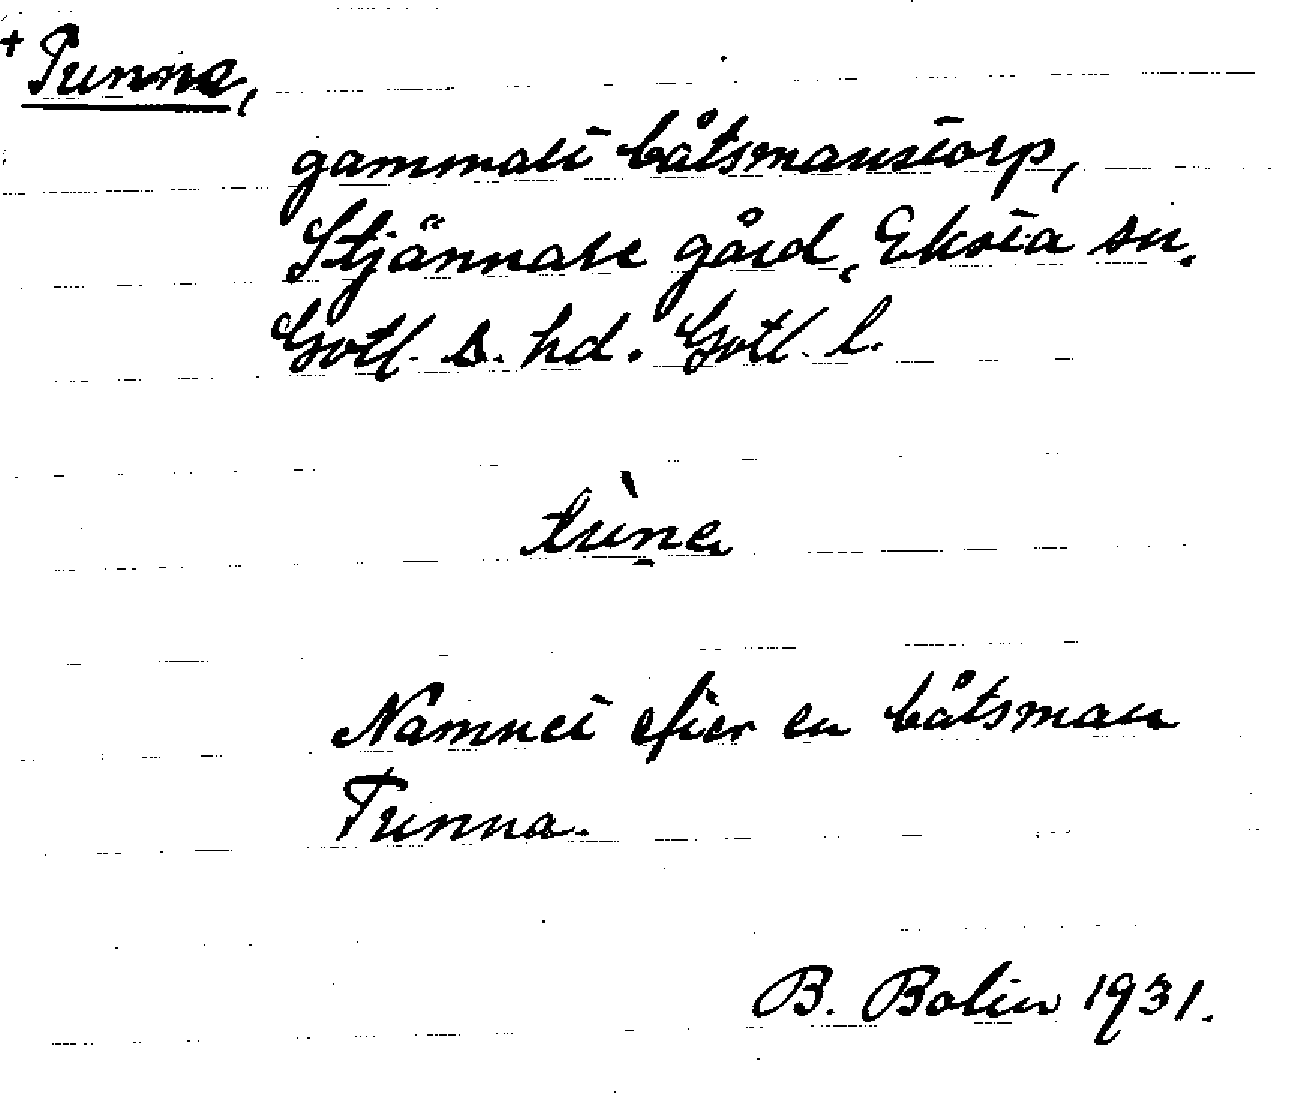 + Tunne,
gammalt båtsmanstorp,
Stjännale gård, Eksta sn.
Gotl. s. hd. Gotl. l.
tùn̠e
Namnet efter en båtsman
Tunna.
B. Bolin 1931.